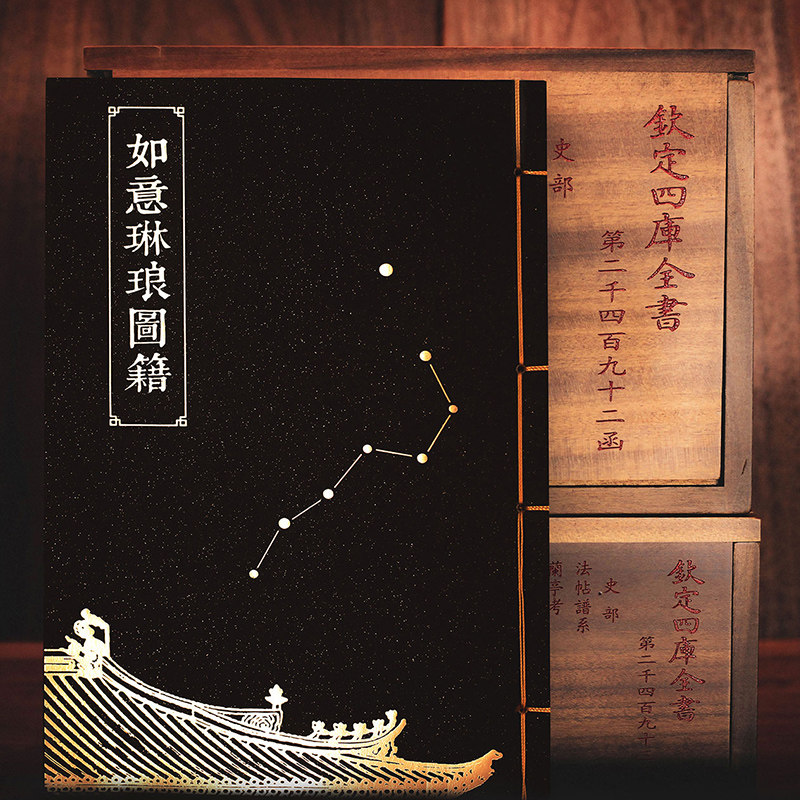 如意琳琅圖籍
欽定四庫全書
史部
第二千四百九十二函
欽定四庫全書
第二千四百九十
史部
法帖譜系
蘭亭考